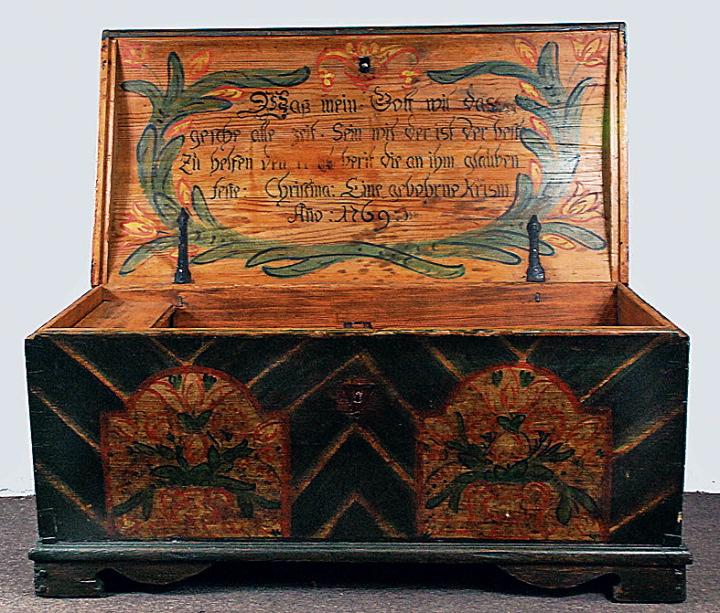 Waß mein Gott wil das
gesche alle zeit. Sein wil der ist der beste
Zu helfen den er ist berit die an ihm glauben
feste: Christina: Eine gebohrne Krisin
Año: 1769: